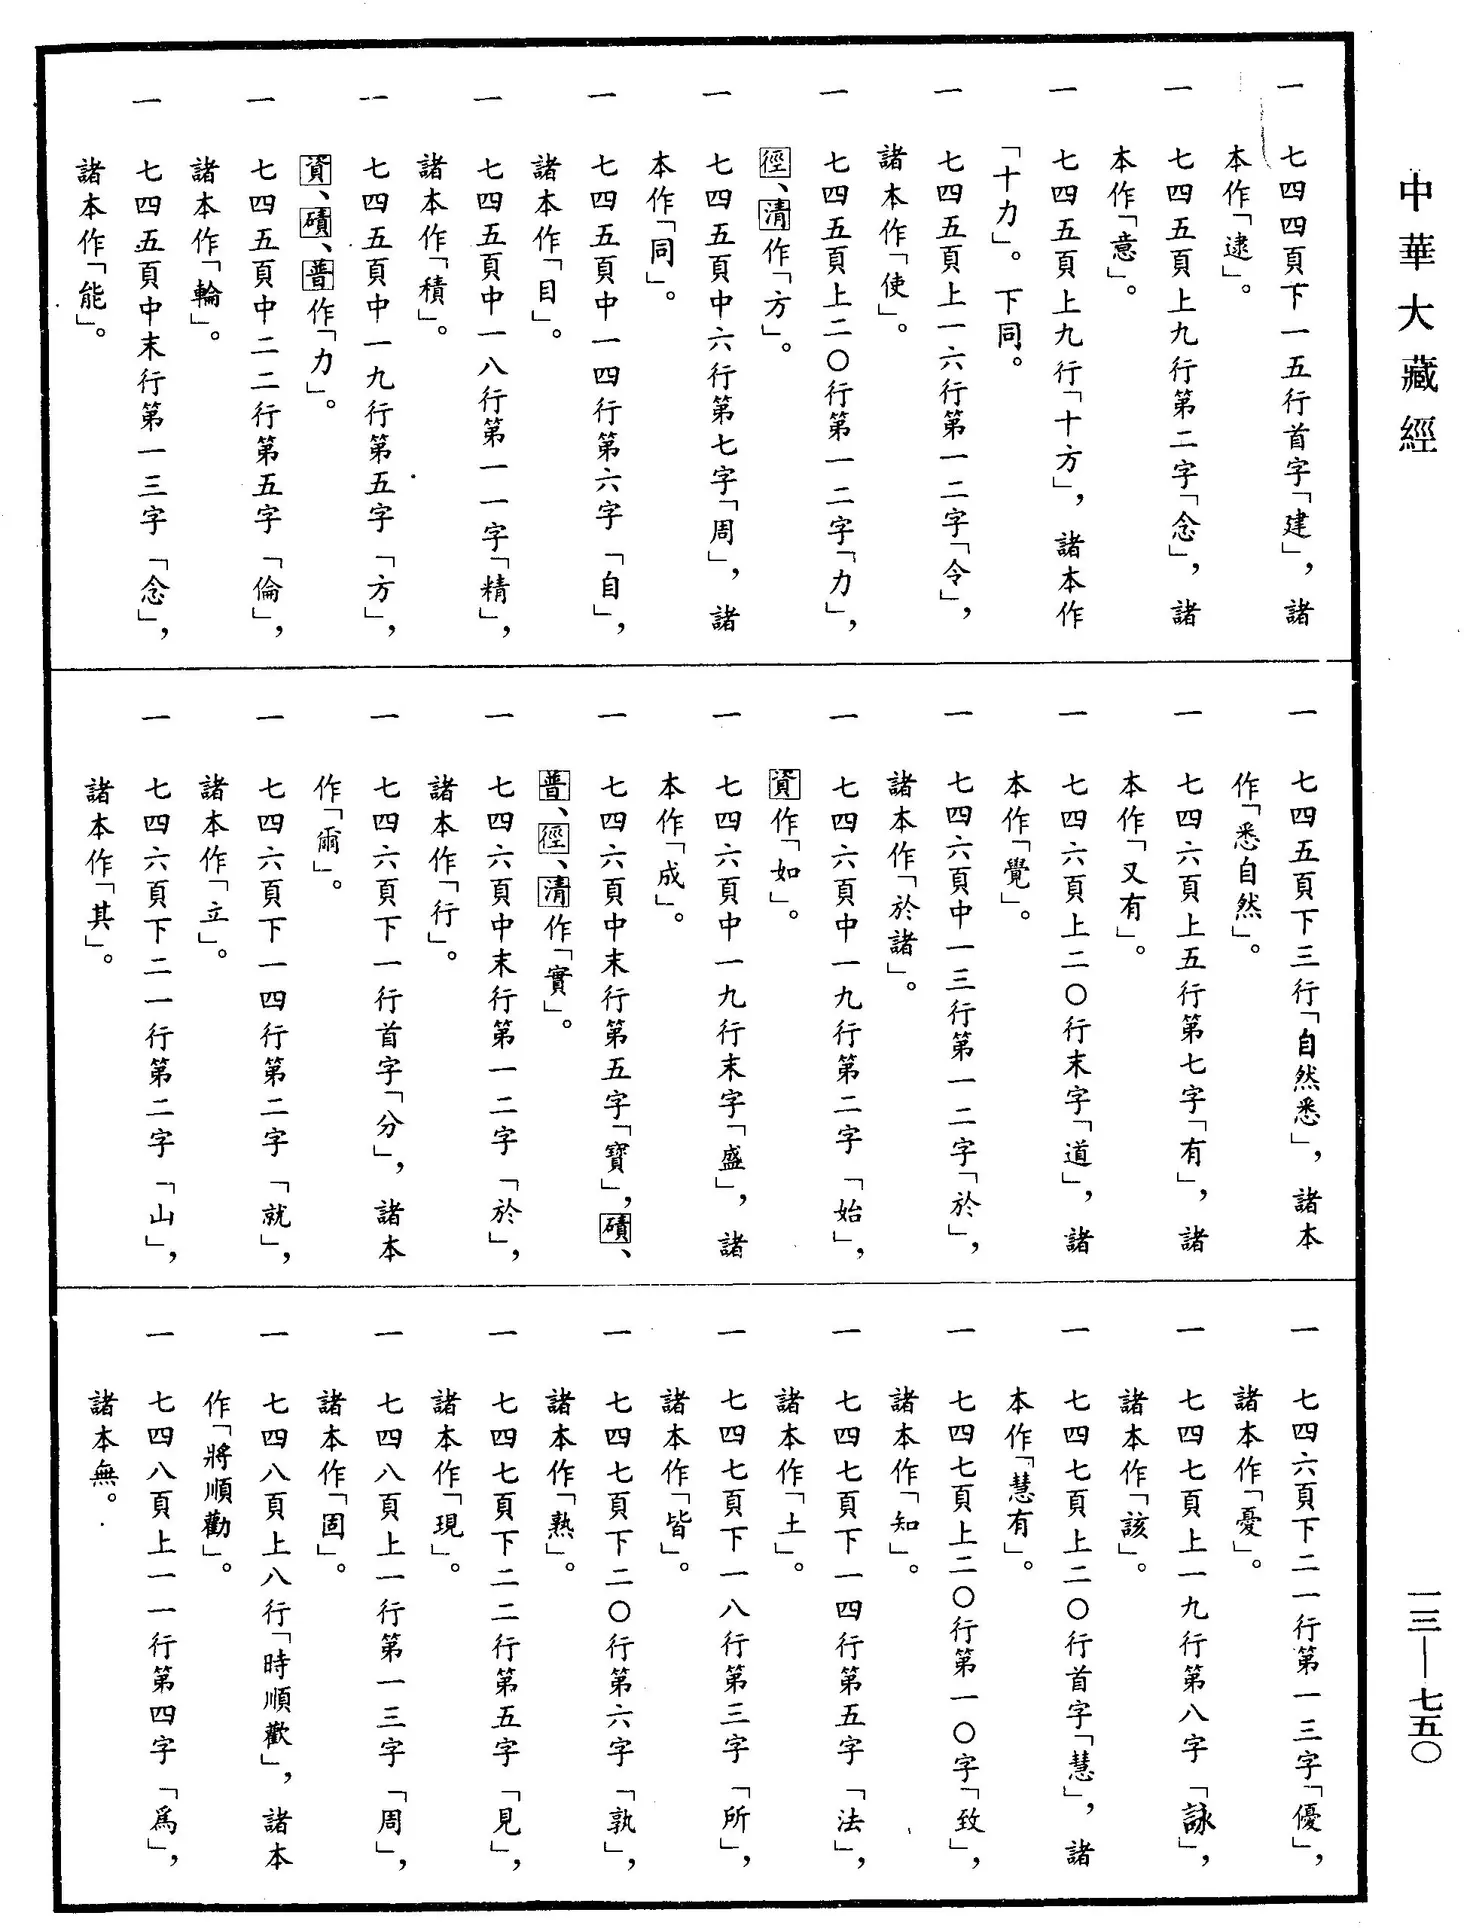 中華大藏經
一三——七五〇
一　七四四頁下一五行首字「建」，諸
本作「逮」。
一　七四五頁上九行第二字「念」，諸
本作「意」。
一　七四五頁上九行「十方」，諸本作
「十力」。下同。
一　七四五頁上一六行第一二字「令」，
諸本作「使」。
一　七四五頁上二〇行第一二字「力」，
徑、清作「方」。
一　七四五頁中六行第七字「周」，諸
本作「同」。
一　七四五頁中一四行第六字「自」，
諸本作「目」。
一　七四五頁中一八行第一一字「精」，
諸本作「積」。
一　七四五頁中一九行第五字「方」，
資、磧、普作「力」。
一　七四五頁中二二行第五字「倫」，
諸本作「輪」。
一　七四五頁中末行第一三字「念」，
諸本作「能」。
一　七四五頁下三行「自然悉」，諸本
作「悉自然」。
一　七四六頁上五行第七字「有」，諸
本作「又有」。
一　七四六頁上二〇行末字「道」，諸
本作「覺」。
一　七四六頁中一三行第一二字「於」，
諸本作「於諸」。
一　七四六頁中一九行第二字「始」，
資作「如」。
一　七四六頁中一九行末字「盛」，諸
本作「成」。
一　七四六頁中末行第五字「寶」，磧、
普、徑、清作「實」。
一　七四六頁中末行第一二字「於」，
諸本作「行」。
一　七四六頁下一行首字「分」，諸本
作「爾」。
一　七四六頁下一四行第二字「就」，
諸本作「立」。
一　七四六頁下二一行第二字「山」，
諸本作「其」。
一　七四六頁下二一行第一三字「優」，
諸本作「憂」。
一　七四七頁上一九行第八字「詠」，
諸本作「該」。
一　七四七頁上二〇行首字「慧」，諸
本作「慧有」。
一　七四七頁上二〇行第一〇字「致」，
諸本作「知」。
一　七四七頁下一四行第五字「法」，
諸本作「土」。
一　七四七頁下一八行第三字「所」，
諸本作「皆」。
一　七四七頁下二〇行第六字「孰」，
諸本作「熟」。
一　七四七頁下二二行第五字「見」，
諸本作「現」。
一　七四八頁上一行第一三字「周」，
諸本作「固」。
一　七四八頁上八行「時順歡」，諸本
作「將順勸」。
一　七四八頁上一一行第四字「爲」，
諸本無。